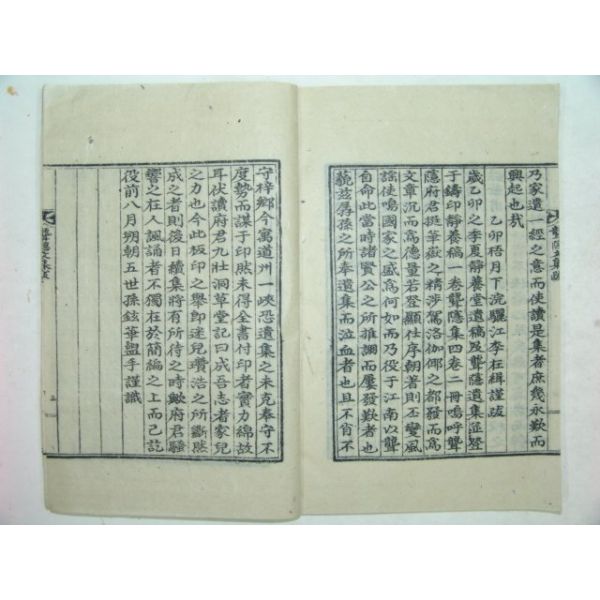 乃家遺一經之意而使讀是集者庶幾永歎而
興起也哉
乙卯梧月下浣驪江李枉緝謹跋
歲乙卯之季夏靜養堂遺稿及聾隱遺集並登
于鑄印靜養稿一卷聾隱集四卷二冊嗚呼聾
隱府君挺華嶽之精涉駕洛伽倻之都發而爲
文章沉而爲德量若登顯仕序朝著則丕變風
謠使鳴國家之盛爲何如而乃役于江南以聾
自命此當時諸賢公之所推詡而屢發歎者也
藐玆孱孫之所奉遺集而泣血者也且不肖不
守梓鄉今寓道州一峽恐遺集之未克奉守不
度勢而謀于印然未得全書付印者實力綿故
耳伏讀府君九壯洞草堂記曰成吾志者家兒
之力也今此板印之舉卽迷兒瓚浩之所斷然
成之者則後日續集將有所待之時歟府君騷
響之在人諷誦者不獨在於簡編之上而已訖
役前八月朔朝五世孫鉉華盥手謹識
聾隱文集跋